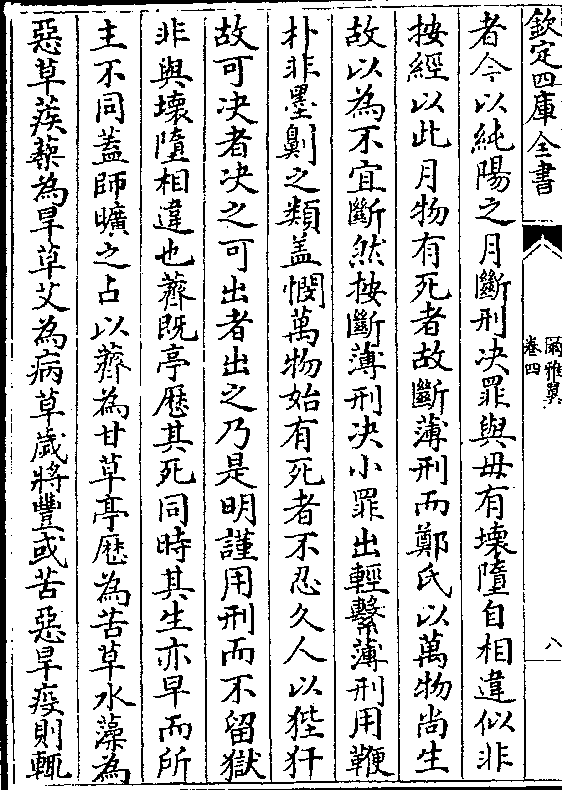 欽定四庫全書
爾雅翼
卷四
八
者今以純陽之月斷刑决罪與毋有壊墮自相違似非
按經以此月物有死者故斷薄刑而鄭氏以萬物尚生
故以為不宜斷然按斷薄刑决小罪出輕繫薄刑用鞭
朴非墨劓之類盖憫萬物始有死者不忍久人以狴犴
故可决者决之可出者出之乃是明謹用刑而不留獄
非與壊墮相違也薺既亭歴其死同時其生亦早而所
主不同蓋師曠之占以薺為甘草亭歴為苦草水藻為
惡草蒺藜為旱草艾為病草歲將豐或苦惡旱疫則輒